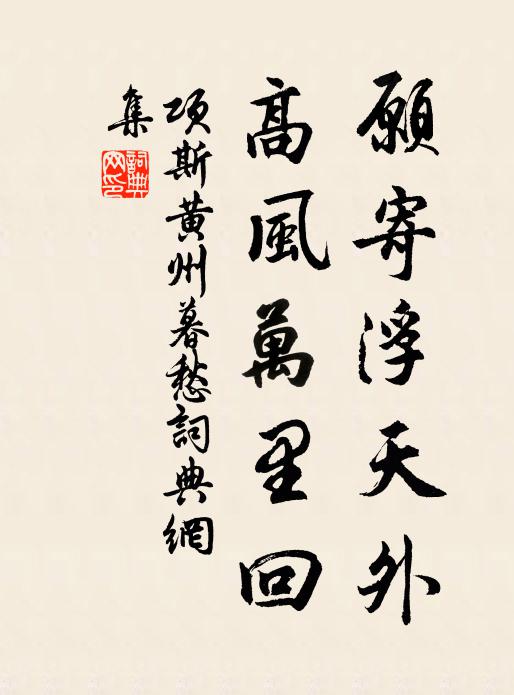 願寄浮天外
高風萬里回
項斯黄州暮愁詞典網
集
詞典
网印